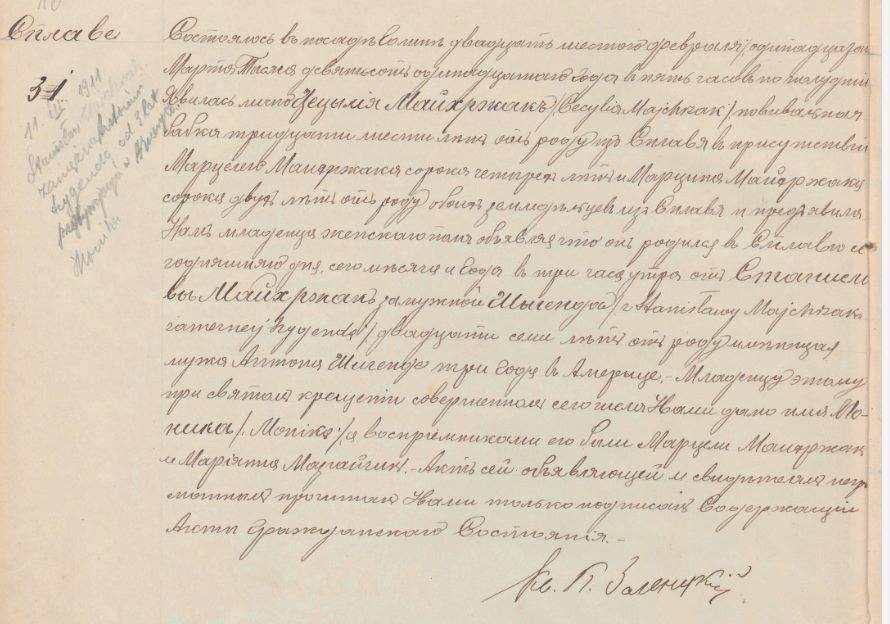 Сплаве
31
11 III 1911
Состоялось въ посадѣ двадцать шестого февраля/одинадцатаго
Марта Тысяча девятьсотъ одинадцатаго года въ пять часовъ по полудни
Явилась лично Цецылія Майхржакъ /Cecylia Majchrzak/ повивальная
бабка тридцати шести лѣтъ отъ роду изъ Сплавя въ присутствіи
Марцелего Майхржака сорока четырехъ лѣтъ и Марцина Майхржака
сорока двухъ лѣтъ отъ роду обоихъ земледѣльцевъ изъ Сплавя и предъявила
Намъ младенца женскаго пола объявляя что онъ родился въ Сплавю се
годняшняго дня, сего мѣсяца и года въ три часа утра отъ Станисла
вы Майхржакъ замужной Шыгенда /z Stanisławy Majchrzak
zamęznej Szygenda/ двадцати семи лѣтъ отъ роду имѣющая
мужа Антона Шигенда три года въ Америце.- Младенцу этому
при святомъ крещеніи совершенномъ сего числа Нами дано имя Мо-
ника /Monika/ а воспріемниками его были Марцели Майхржак
и Маріянна .- Актъ сей объявляющей и свидѣтелямъ негра
мотнымъ прочитанъ Нами только подписанъ Содержащій
Акты Гражданскаго Состоянія.-
Кс. П. Заленцкій